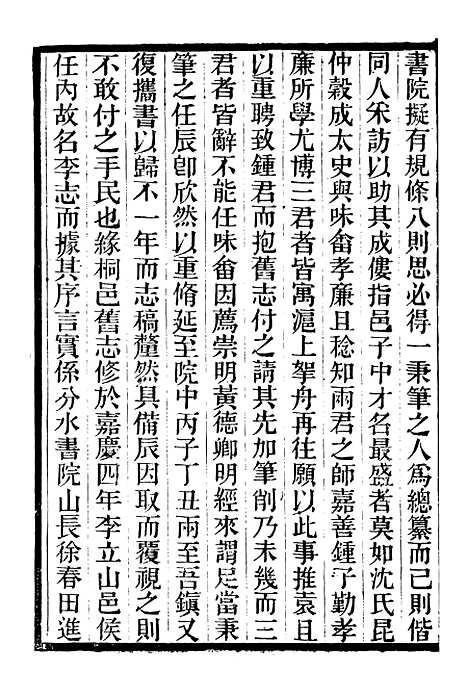 書院擬有規條八則思必得一秉筆之人爲總纂而己則偕
同人采訪以助其成僂指邑子中才名最盛者莫如沈氏昆
仲穀成太史與味畬孝廉且稔知兩君之師嘉善鍾子勤孝
廉所學尤博三君者皆寓滬上挐舟再往願以此事推袁且
以重聘致鍾君而抱舊志付之請其先加筆削乃未幾而三
君者皆辭不能任味畬因薦崇明黃德卿明經來謂足當秉
筆之任辰卽欣然以重脩延至院中丙子丁丑兩至吾鎭又
復攜書以歸不一年而志稿釐然具備辰因取而覆視之則
不敢付之手民也緣桐邑舊志修於嘉慶四年李立山邑侯
任內故名李志而據其序言實係分水書院山長徐春田進